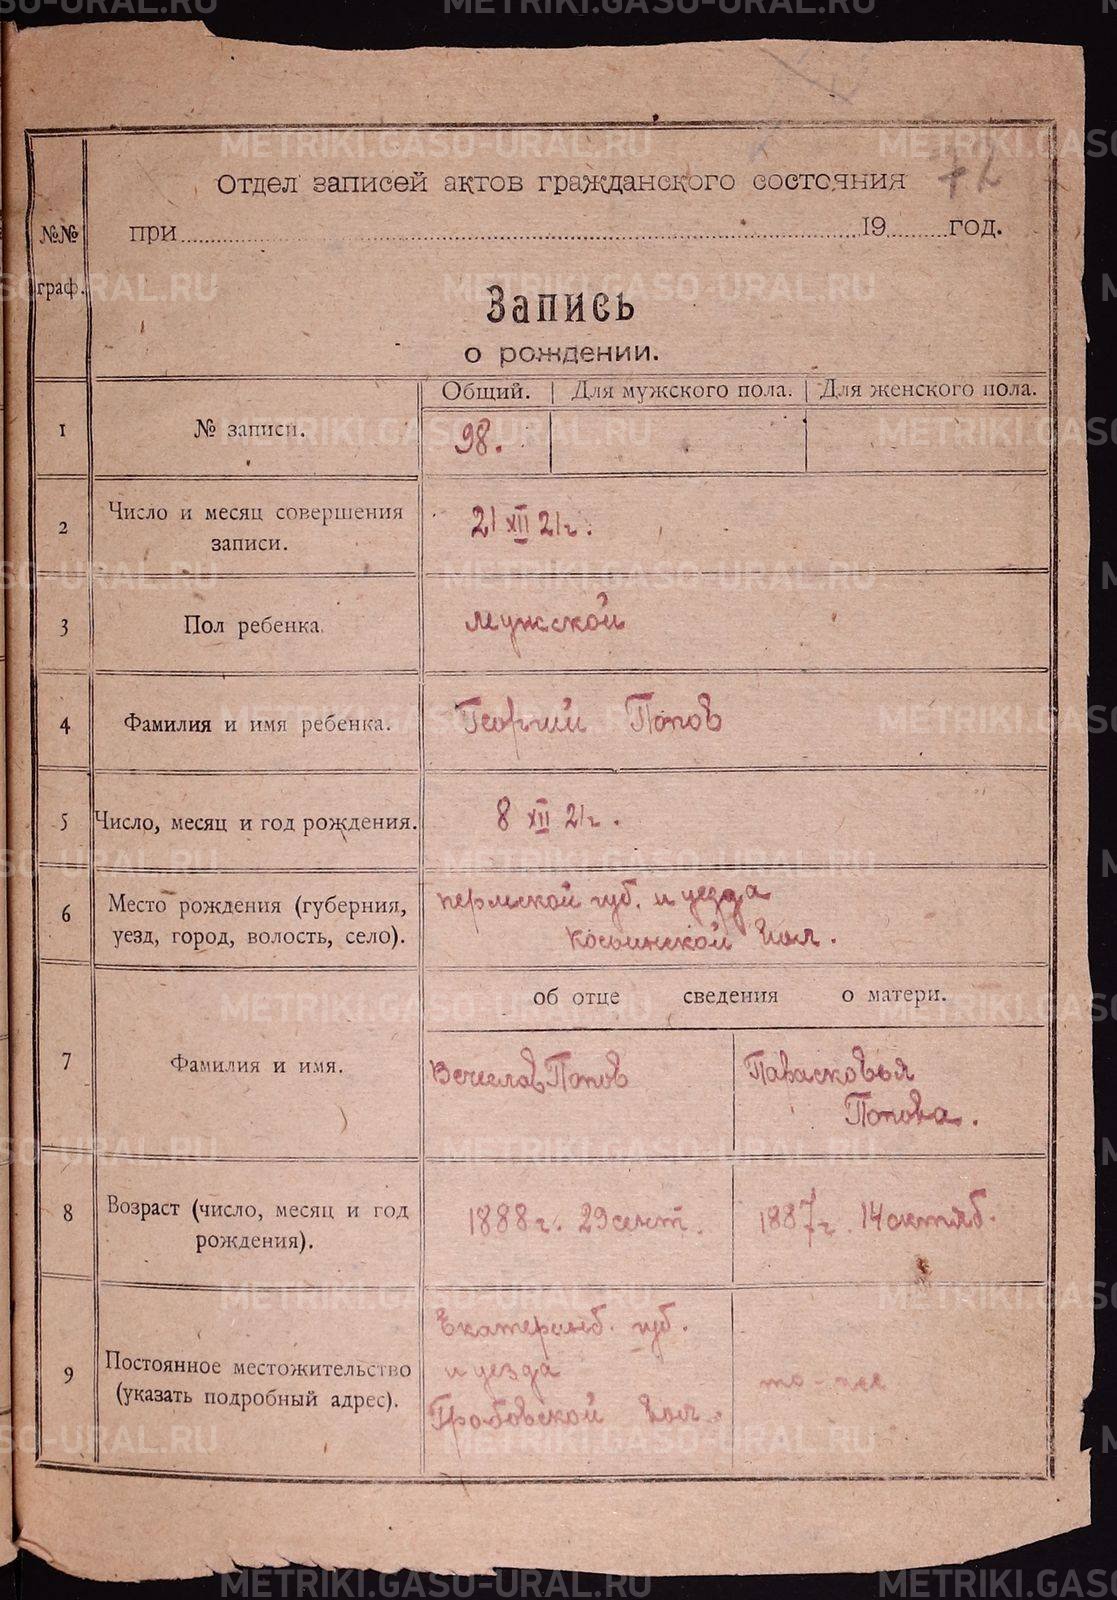 72
Отдел записей актов гражданского состояния
при 19 год.
№№ граф.
Запись
о рождении.
Общий. Для мужского пола. Для женского пола.
1 № записи. 98.
2 Число и месяц совершения записи. 21 XII 21г.
3 Пол ребенка. мужской
4 Фамилия и имя ребенка. Георгий Попов
5 Число, месяц и год рождения. 8 XII 21г.
6 Место рождения (губерния, уезд, город, волость, село). пермской губ. и уезда
Косьинской вол.
об отце сведения о матери.
7 Фамилия и имя. Вечеслав Попов Парасковья
Попова.
8 Возраст (число, месяц и год рождения). 1888г. 29 сент. 1887г. 14 октяб.
9 Постоянное местожительство (указать подробный адрес). Екатеринб. губ.
и уезда то-же
Гробовской вол.
METRIKI.GASO-URAL.RU